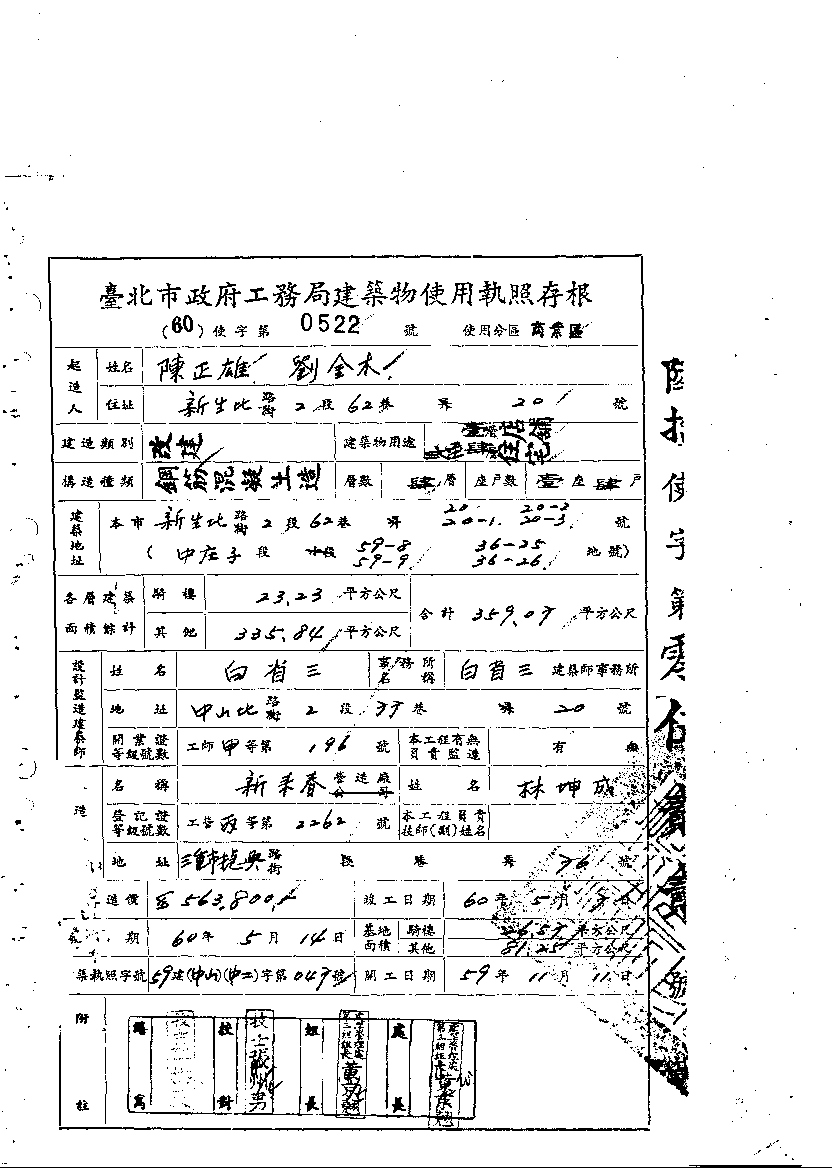 臺北市政府工務局建築物使用執照存根
(60)使字第 0522 號 使用分區 商業區
起造人 姓名 陳正雄 劉金木
住址 新生北 路街 2 段 62 巷 弄 20 號
建造類別 改建 建築物用途 店舖 住宅
構造種類 鋼筋混凝土造 層數 肆 層 座戶數 壹 座 肆 戶
建築地址 本市 新生北 路街 2 段 62 巷 弄 20 20-1. 20-2 20-3 號
( 中庄子 段 小段 59-8 59-9 36-25 36-26 地號)
各層建築面積總計 騎樓 23.23 平方公尺 合計 359.07 平方公尺
其他 335.84 平方公尺
設計監造建築師 姓名 白省三 事務所名稱 白省三 建築師事務所
地址 中山北 路街 2 段 37 巷 弄 20 號
開業證等級號數 工師 甲 等第 196 號 本工程有無負責監造 有 無
名稱 新來春 營造廠公司 姓名 林坤成
造 登記證等級號數 工營 丙 等第 2262 號 本工程負責技師(副)姓名
地址 路街 段 巷 弄 號
造價 563,800 竣工日期 60 年 5 月 日
期 60 年 5 月 14 日 基地面積 騎樓 26.57 平方公尺 其他 81.25 平方公尺
築執照字號 59 建(中山)(中二)字第 047 號 開工日期 59 年 11 月 11 日
附註 繕寫 校對 組長 處長
陸拾使字第零伍貳貳號